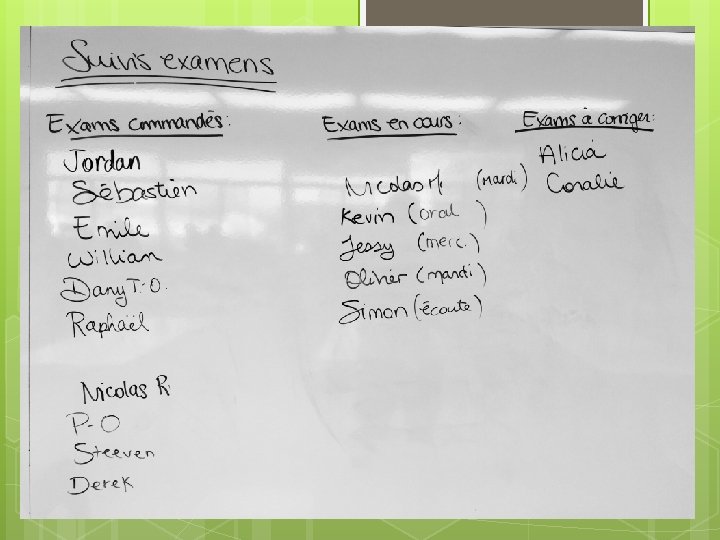 Suivis examens
Exams commandés:
Jordan
Sébastien
Emile
William
Dany T.-O.
Raphaël
Nicolas R.
P-O
Steeven
Derek
Exams en cours:
Nicolas M. (mardi)
Kevin (oral)
Jessy (merc.)
Olivier (mardi)
Simon (écoute)
Exams à corriger:
Alicia
Coralie